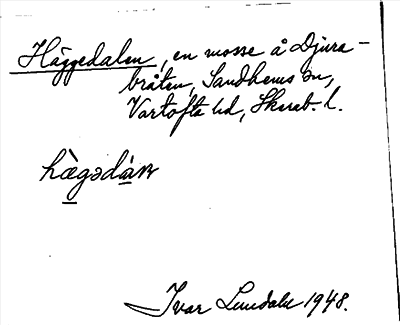 Häggedalen, en mosse å Djura-
bråten, Sandhems sn,
Vartofta hd, Skarab. l.
hægədàɳ
Ivar Lundahl 1948.